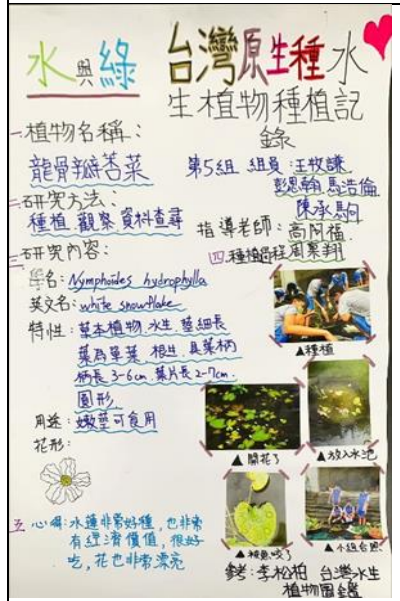 水與綠 台灣原生種水
生植物種植記
錄
一.植物名稱:
龍骨瓣莕菜
第5組 組員:王牧謙
彭思翰 馬浩倫
陳承駒
二.研究方法:
種植.觀察.資料查尋
指導老師:高阿福.
周業翔
三.研究內容:
學名:Nymphoides hydrophylla
英文名:white snowflake
特性:草本植物.水生.莖細長
葉為單葉.根生.具葉柄
柄長3-6cm.葉片長2-7cm.
圓形
用途:嫩莖可食用
花形:
四.種植過程
▲種植
▲開花了
▲放入水池
▲被魚咬了
▲小組合照
五 心得:水蓮非常好種,也非常
有經濟價值,很好
吃,花也非常漂亮
參考:李松柏 台灣水生
植物圖鑑